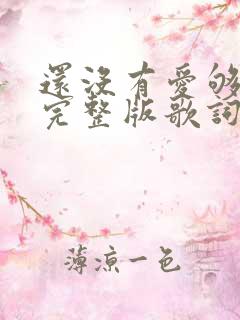 還沒有愛够
完整版歌詞
薄涼一色